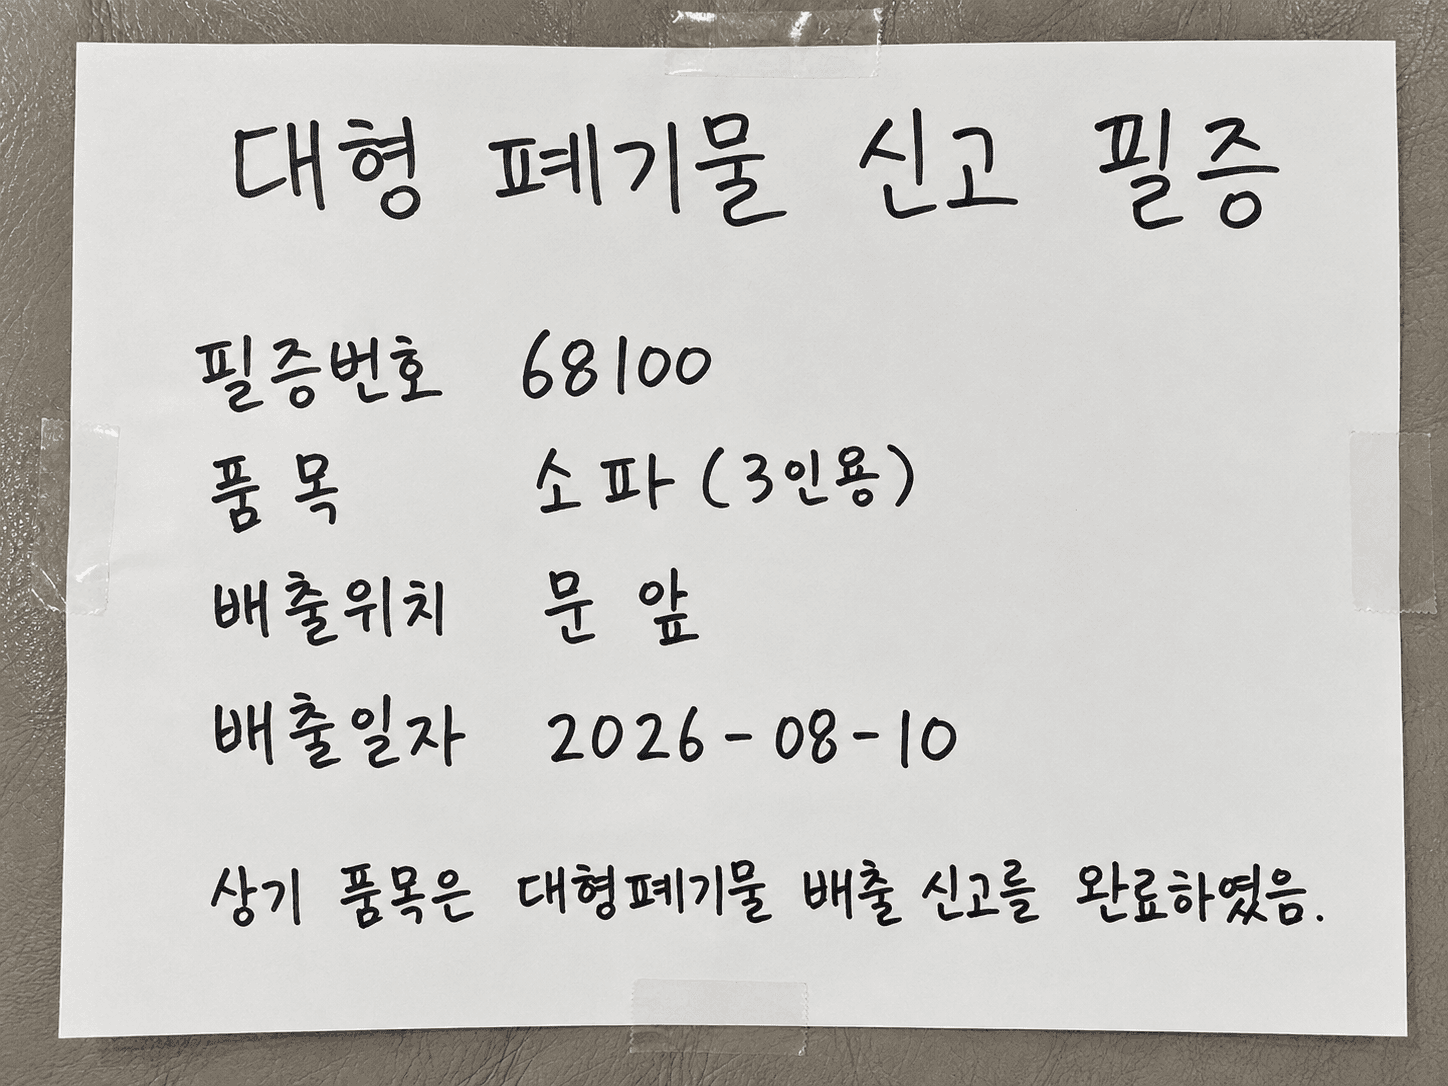 대형 폐기물 신고 필증
필증번호 68100
품 목 소 파 (3인용)
배출위치 문 앞
배출일자 2026-08-10
상기 품목은 대형폐기물 배출 신고를 완료하였음.